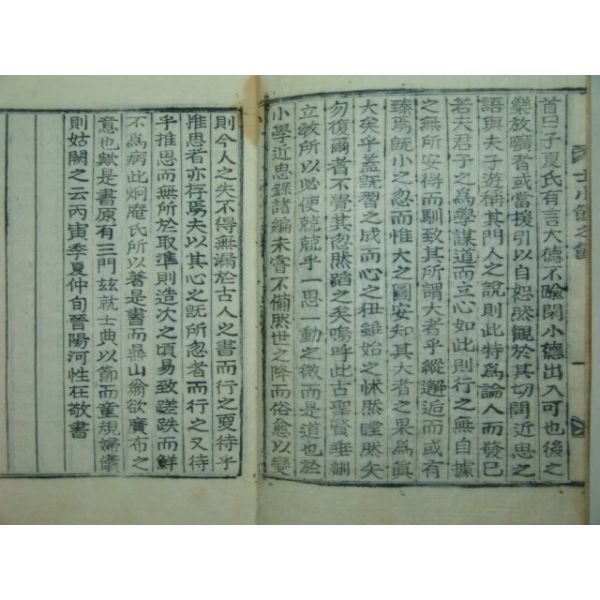 士小節之節 一
首曰子夏氏有言大德不踰閑小德出入可也後之
樂放曠者或當援引以自恕然觀於其切問近思之
語與夫子遊稱其門人之說則此特為論人而發已
若夫君子之為學謀道而立心如此則行之無自據
之無所安得而馴致其所謂大者乎縱邂逅而或有
臻焉旣小之忽而惟大之圖安知其大者之果為眞
大矣乎蓋旣習之成而心之狃雖始之怵然瞠然矣
勿復爾者不覺其忽然蹈之矣嗚呼此古聖賢垂訓
立敎所以必使兢兢乎一思一動之微而是道也於
小學近思錄諸編未嘗不備然世之降而俗愈以變
則今人之失不得無漏於古人之書而行之戛待乎
推思者亦存焉夫以其心之旣所忽者而行之又待
乎推思而無所於取準則造次之頃易致蹉跌而鮮
不為病此炯庵氏所以著是書而鼎山翁欲廣布之
意也歟是書原有三門玆就士典以節而童規婦儀
則姑闕之云丙寅季夏仲旬晉陽河性在敬書